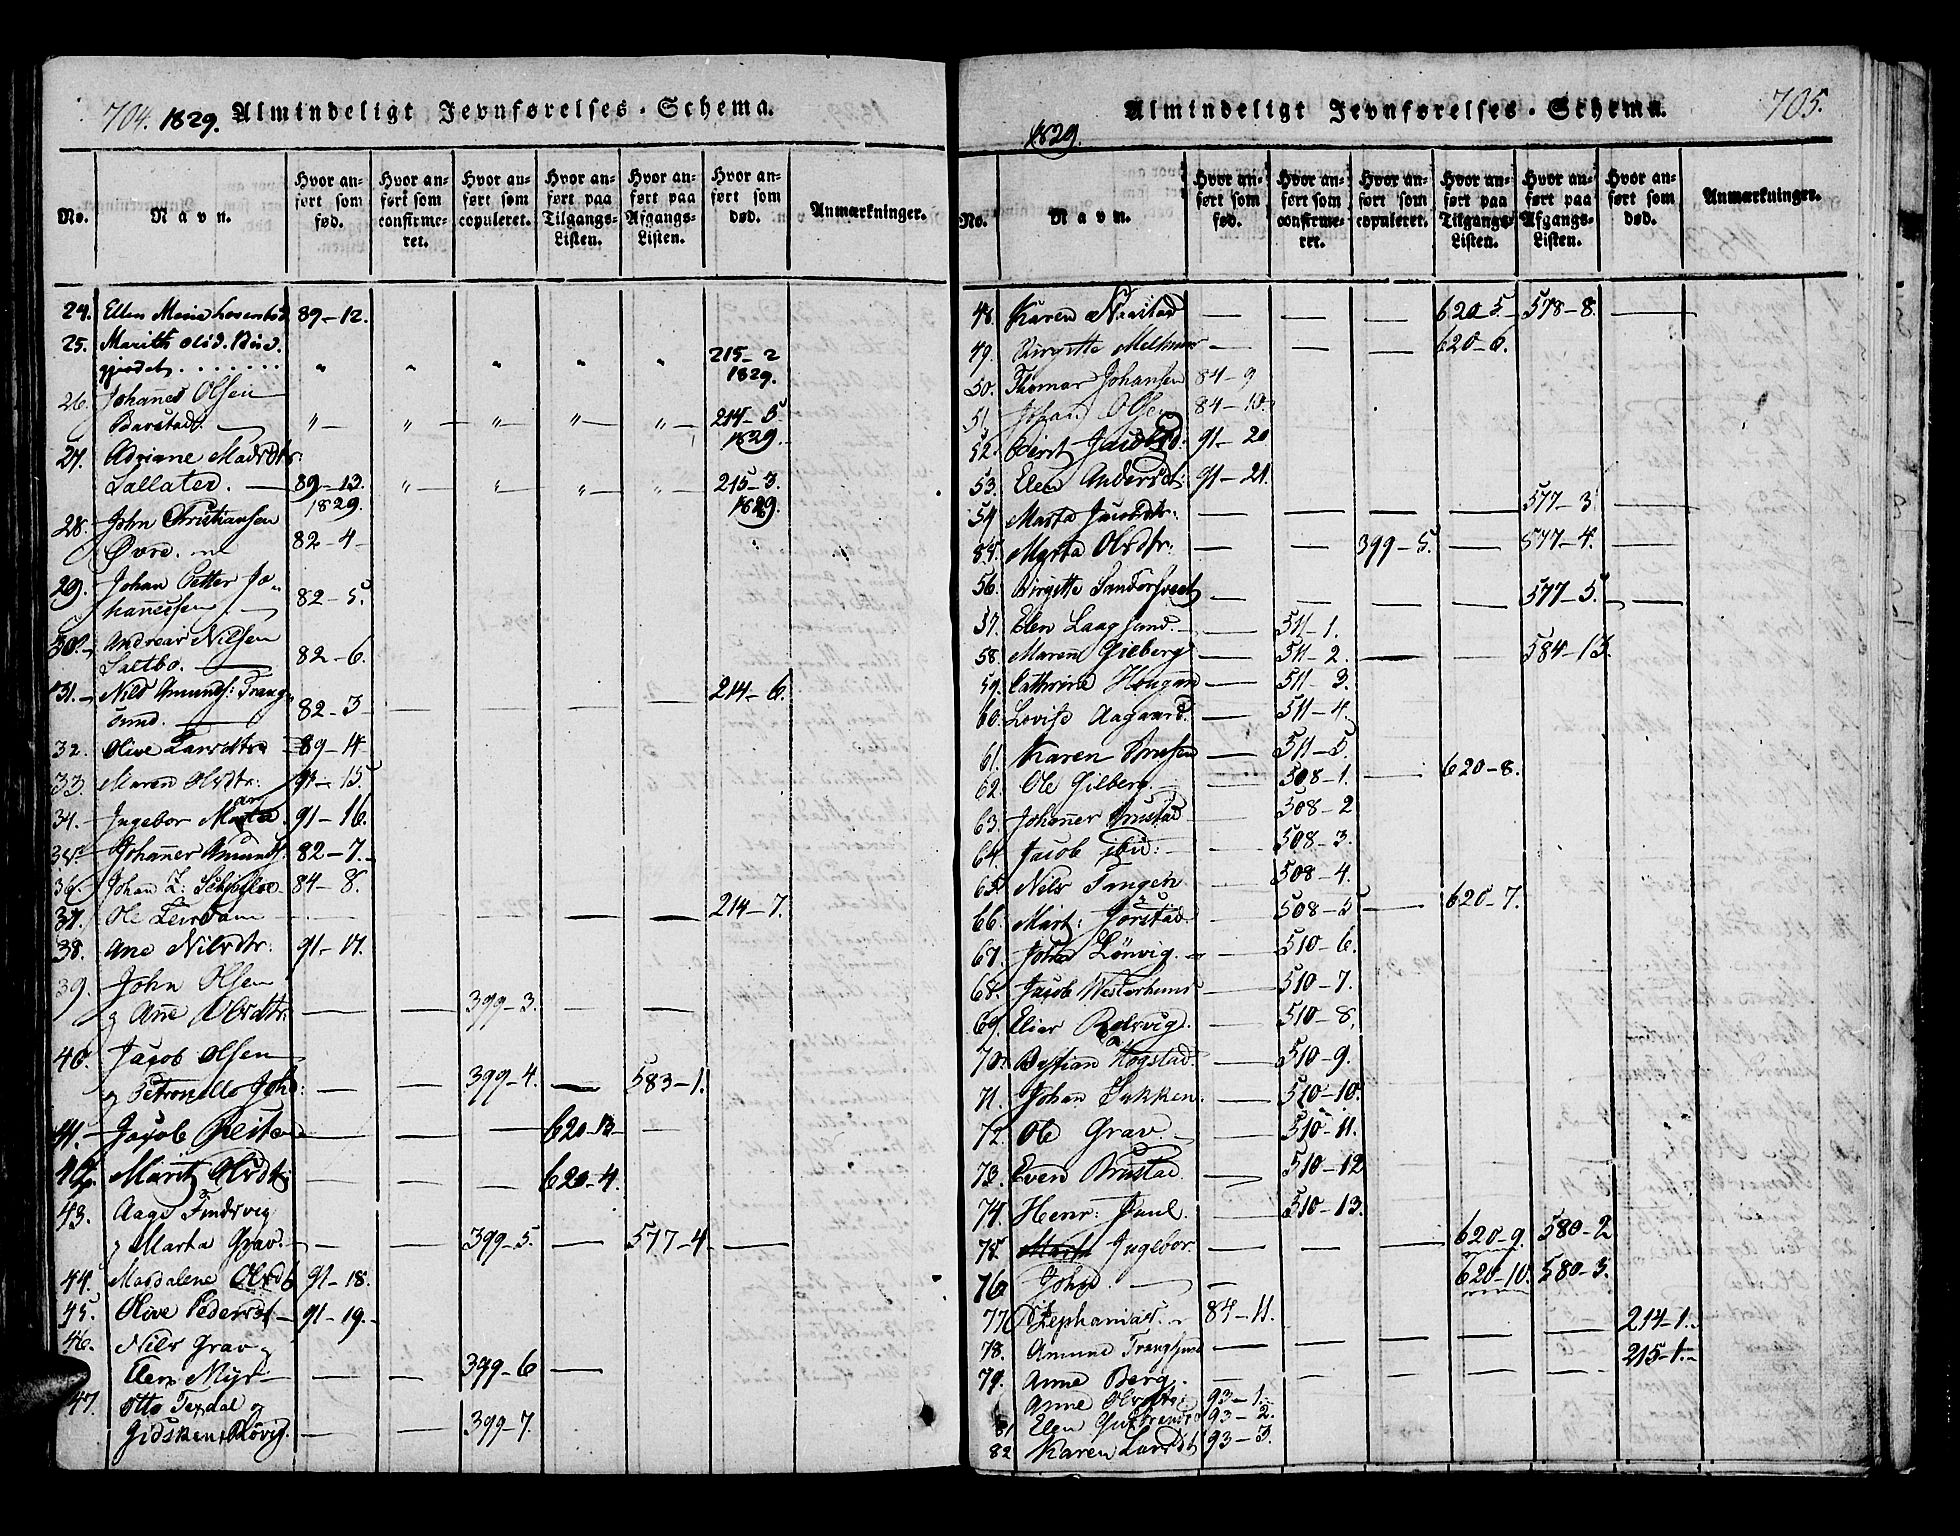 704. 1829. Almindeligt Jevnførelses-Schema.
No. Navn. Hvor anført som fød. Hvor anført som confirmeret. Hvor anført som copuleret. Hvor anført paa Tilgangs-Listen. Hvor anført paa Afgangs-Listen. Hvor anført som død. Anmærkninger.
24. Ellen Maria 89-12.
25. Marith
. . . . . . . " " " " " 215-2
1829.
26. Johannes Olsen
Barstad. "- "- "- "- "- 214-5
1829.
27. Adriane Madsdtr
Sallater. 89-13. "- "- "- "- 215-3
1829. 1829.
28. John Christiansen
Øvre. 82-4-
29. Johan Petter Jo-
hannessen 82-5.
30. Andreas Nilsen
Saltbo. 82-6.
31. Nils Amunds: Trang-
sund. 82-3 — — — — 214-6.
32. Olive Larsdtr 89-14
33. Maren Olsdtr: 91-15
34. Ingebor 91-16.
35. Johannes Amunds: 82-7.
36. Johan Z: 84-8.
37. Ole — — — — — 214-7.
38. Ane Nilsdtr: 91-17.
39. John Olsen
og Ane Olsdtr. — — 399-3. — —
40. Jacob Olsen
og Petronelle Joh: — — 399-4. — 583-1.
41. Jacob — — — 620-13 —
42. Marit Olsdtr: — — — 620-4.
43. Aage
og Marta Grav. — — 399-5. — 577-4 —
44. Magdalene Olsdt 91-18.
45. Olive Pedersdt 91-19.
46. Nils Grav og
Elen Myr — — 399-6 —
47. Otto Texdal og
Gidsken — — 399-7.
Almindeligt Jevnførelses-Schema. 705.
1829.
No. Navn. Hvor anført som fød. Hvor anført som confirmeret. Hvor anført som copuleret. Hvor anført paa Tilgangs-Listen. Hvor anført paa Afgangs-Listen. Hvor anført som død. Anmærkninger.
48. Karen Naastad — — — 620-5. 578-8. —
49. Birgitte — — — 620-6.
50. Thomas Johansen 84-9
51. Johan Olsen 84-10.
52. Berit Jacobsd: 91-20
53. Elen Andersdt: 91-21.
54. Marta Jacobsdtr: 577-3.
55. Marta Olsdtr: — — 399-5. — 577-4. —
56. Birgitte — — — — 577-5. —
57. Elen Laagsand. — 511-1.
58. Maren Gilberg — 511-2. — — 584-13.
59. Cathrine Hougan — 511-3.
60. Lovise Aagaard. — 511-4.
61. Karen — 511-5.
62. Ole Gilberg — 508-1. — 620-8.
63. Johannes Brustad — 508-2
64. Jacob ibid: — 508-3.
65. Nils Tangen — 508-4.
66. Mart: Jørstad — 508-5 — 620-7.
67. Johan Lønvig. — 510-6.
68. Jacob — 510-7.
69. Elias — 510-8.
70. Bastian Høgstad. — 510-9.
71. Johan — 510-10.
72. Ole Grav. — 510-11.
73. Even Brustad — 510-12
74. Henr: Paul — 510-13.
75. Ingebor — — — 620-9. 580-2
76 John — 620-10. 580-3.
77. Zephanias. 84-11.
78. Amund — — — — — 214-1.
79. Anne Berg. — — — — — 215-1.
Anne Olsdtr 93-1.
81 Elen 93-2.
82 Karen Larsdt 93-3.